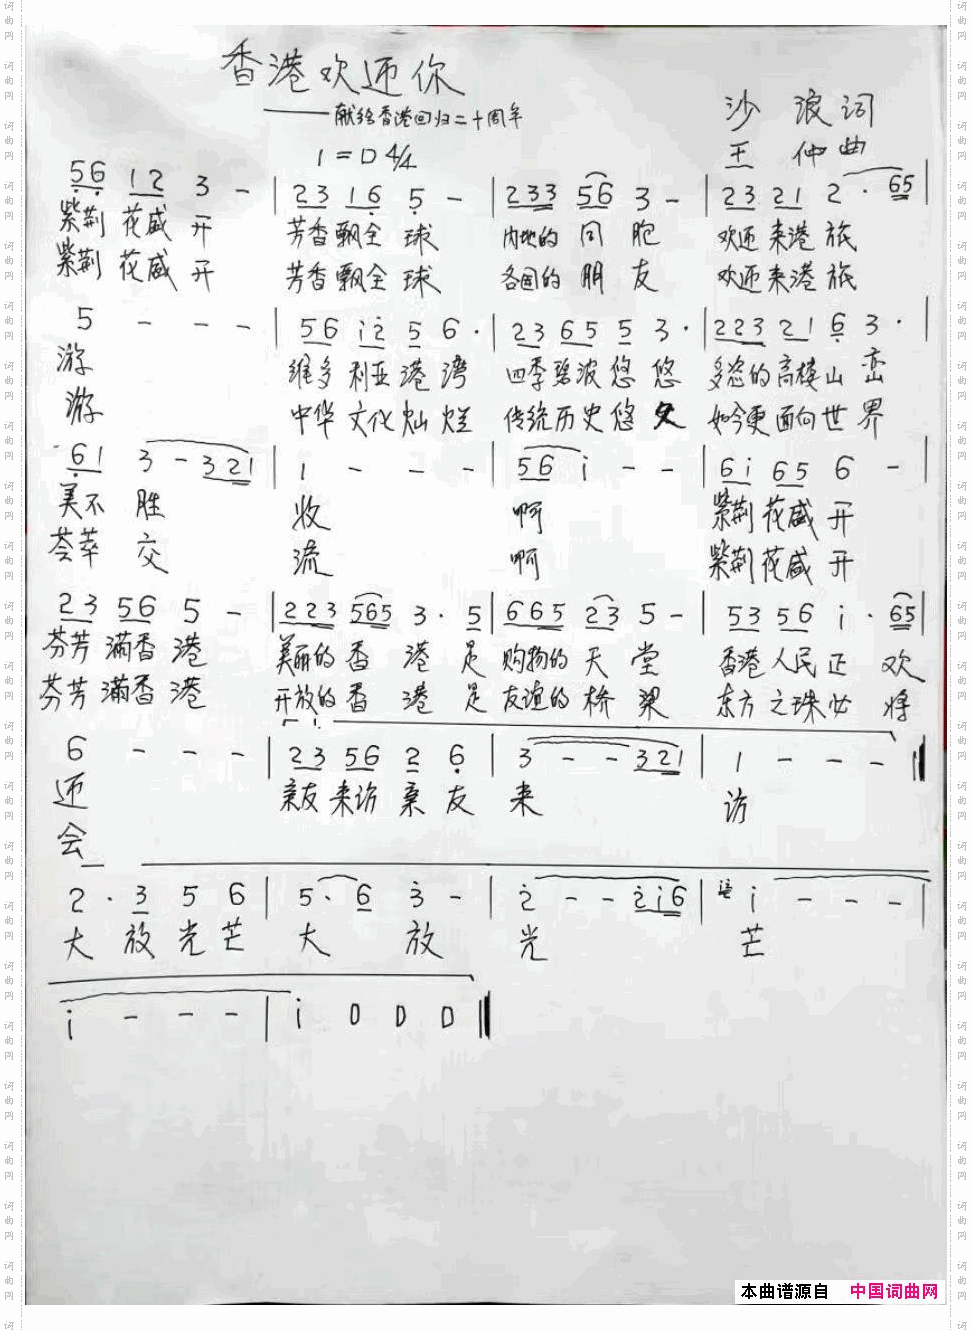 香港欢迎你
——献给香港回归二十周年
沙 浪 词
1 = D 4/4
王 仲 曲
56 12 3 - | 23 16 5 - | 233 56 3 - | 23 21 2 · 65 |
紫荆 花盛 开 芳香飘全 球 内地的 同 胞 欢迎来港 旅
紫荆 花盛 开 芳香飘全 球 各国的 朋 友 欢迎来港 旅
5 - - - | 56 i2 5 6 · | 23 65 5 3 · | 223 21 6 3 · |
游 维多利亚港湾 四季碧波悠悠 多姿的高楼山峦
游 中华文化灿烂 传统历史悠久 如今更面向世界
61 3 - 321 | 1 - - - | 56 i - - | 6i 65 6 - |
美不 胜 收 啊 紫荆花盛开
荟萃 交 流 啊 紫荆花盛开
23 56 5 - | 223 565 3 · 5 | 665 23 5 - | 53 56 i · 65 |
芬芳 满香 港 美丽的 香 港 是 购物的 天 堂 香港人民正 欢
芬芳 满香 港 开放的 香 港 是 友谊的 桥 梁 东方之珠必 将
6 - - - | 23 56 2 6 | 3 - - 321 | 1 - - - ‖
迎 亲友来访亲友 来 访
会
2 · 3 5 6 | 5 · 6 3 - | 2 - - 2i6 | i - - - |
大 放 光 芒 大 放 光 芒
i - - - | i 0 0 0 ‖
本曲谱源自 中国词曲网
词曲网